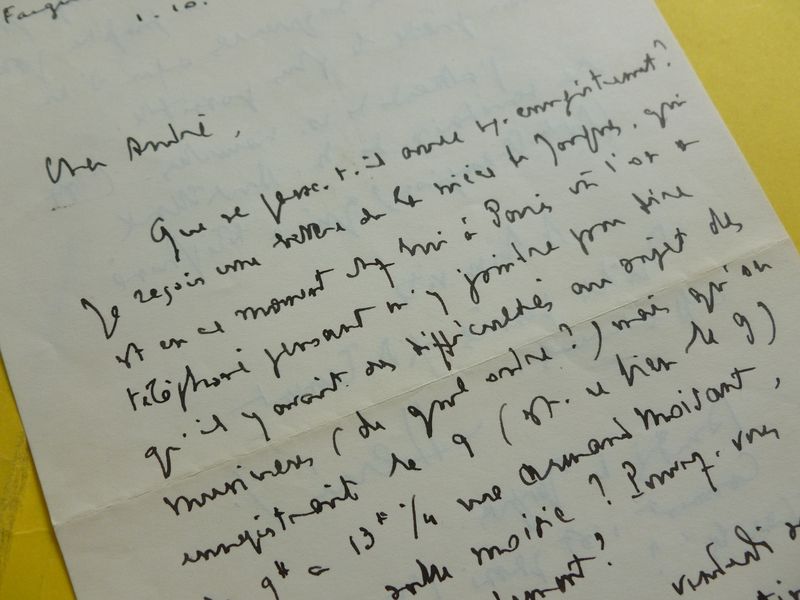 1. 10.
Cher André,
Que se passe-t-il avec l'enregistrement?
Je reçois une lettre de la nièce de Jouffroy, qui
est en ce moment chez lui à Paris où l'on a
téléphoné pensant m'y joindre pour dire
qu'il y avait des difficultés au sujet des
musiciens (de quel ordre?) mais qu'on
enregistrait le 9 (est-ce bien le 9)
9h à 13h rue Armand Moisant,
salle moisie? Pouvez-vous
vendredi